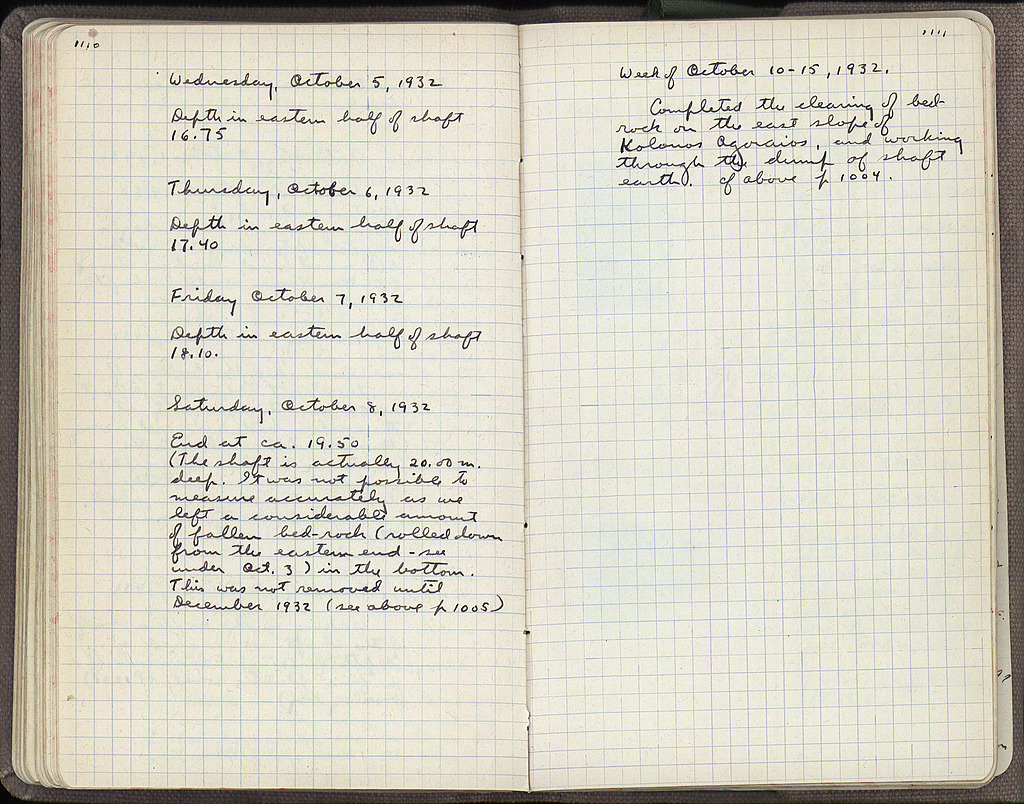 1110
Wednesday, October 5, 1932
Depth in eastern half of shaft
16.75
Thursday, October 6, 1932
Depth in eastern half of shaft
17.40
Friday October 7, 1932
Depth in eastern half of shaft
18.10.
Saturday, October 8, 1932
End at ca. 19.50
(The shaft is actually 20.00 m.
deep. It was not possible to
measure accurately as we
left a considerable amount
of fallen bed-rock (rolled down
from the eastern end - see
under Oct. 3) in the bottom.
This was not removed until
December 1932 (see above p 1005)
1111
Week of October 10-15, 1932.
Completed the clearing of bed-
rock on the east slope of
Kolonos Agoraios, and working
through the dump of shaft
earth. cf above p 1004.